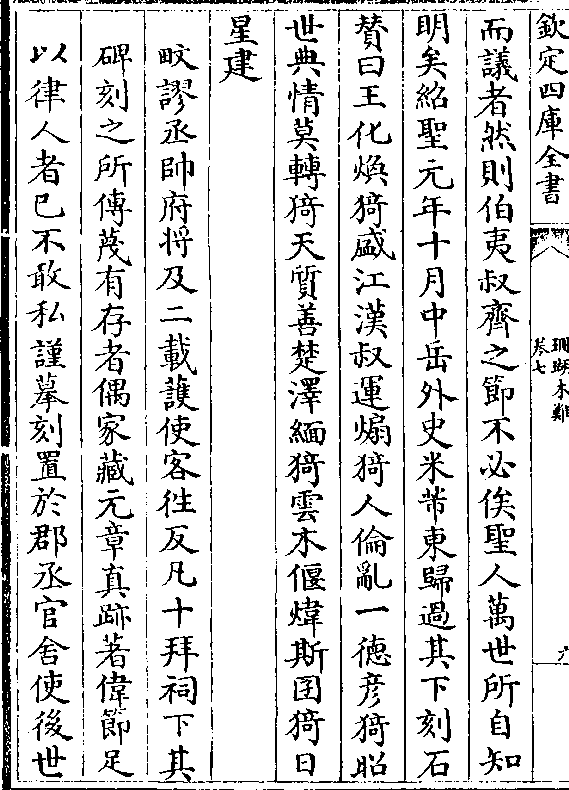 欽定四庫全書
珊瑚木難
卷七
而議者然則伯夷叔齊之節不必俟聖人萬世所自知
明矣紹聖元年十月中岳外史米芾東歸過其下刻石
賛曰王化煥猗盛江漢叔運煽猗人倫亂一徳彦猗昭
世典情莫轉猗天質善楚澤緬猗雲木偃煒斯囝猗日
星建
畋謬丞帥府将及二載護使客徃反凡十拜祠下其
碑刻之所傳蔑有存者偶家藏元章真跡著偉節足
以律人者已不敢私謹摹刻置於郡丞官舍使後世